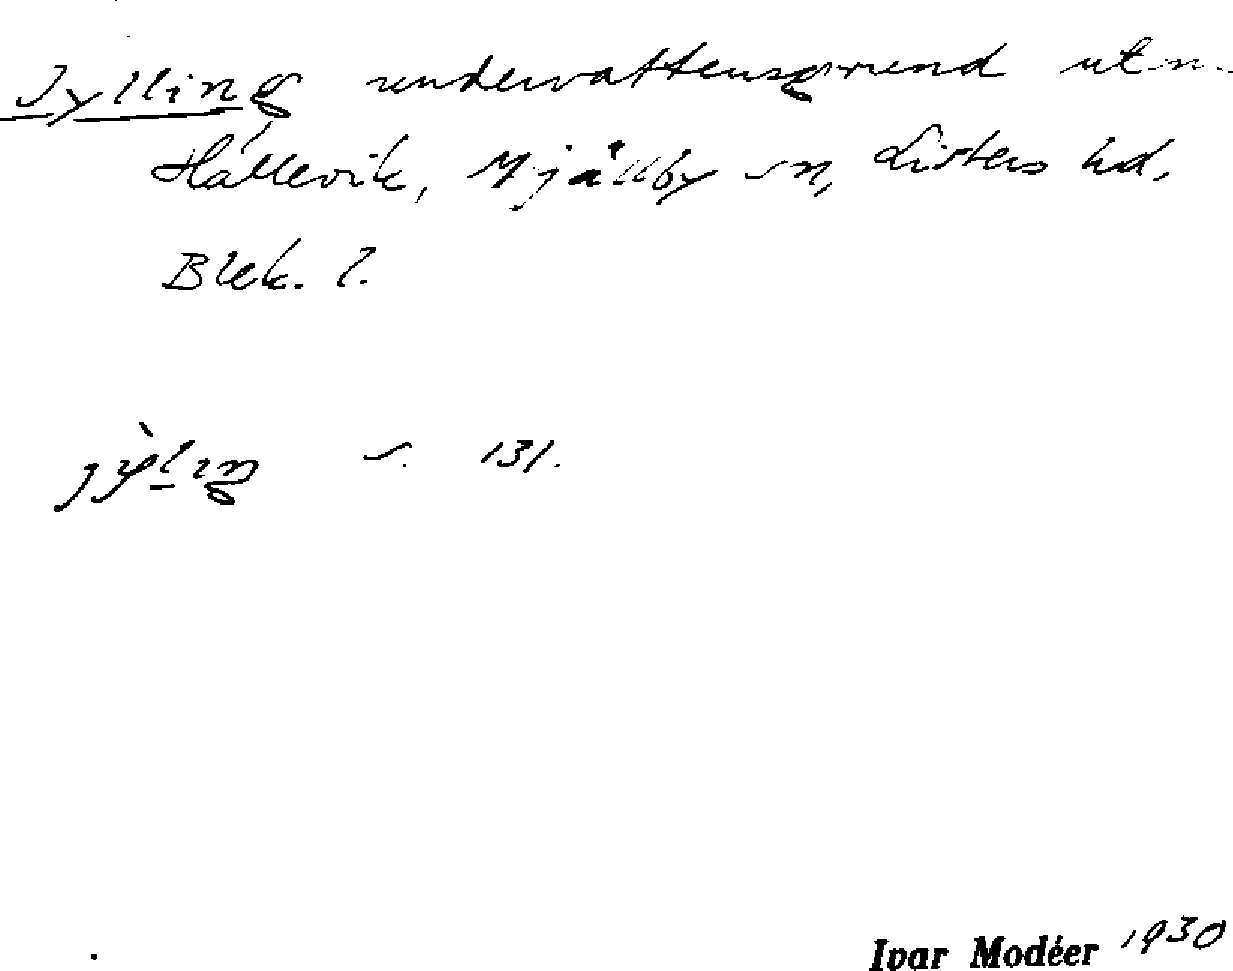 Jylling undervattensgrund utm.
Hällevik, Mjällby sn, Listers hd,
Blek. l.
s. 131.
Ivar Modéer 1930